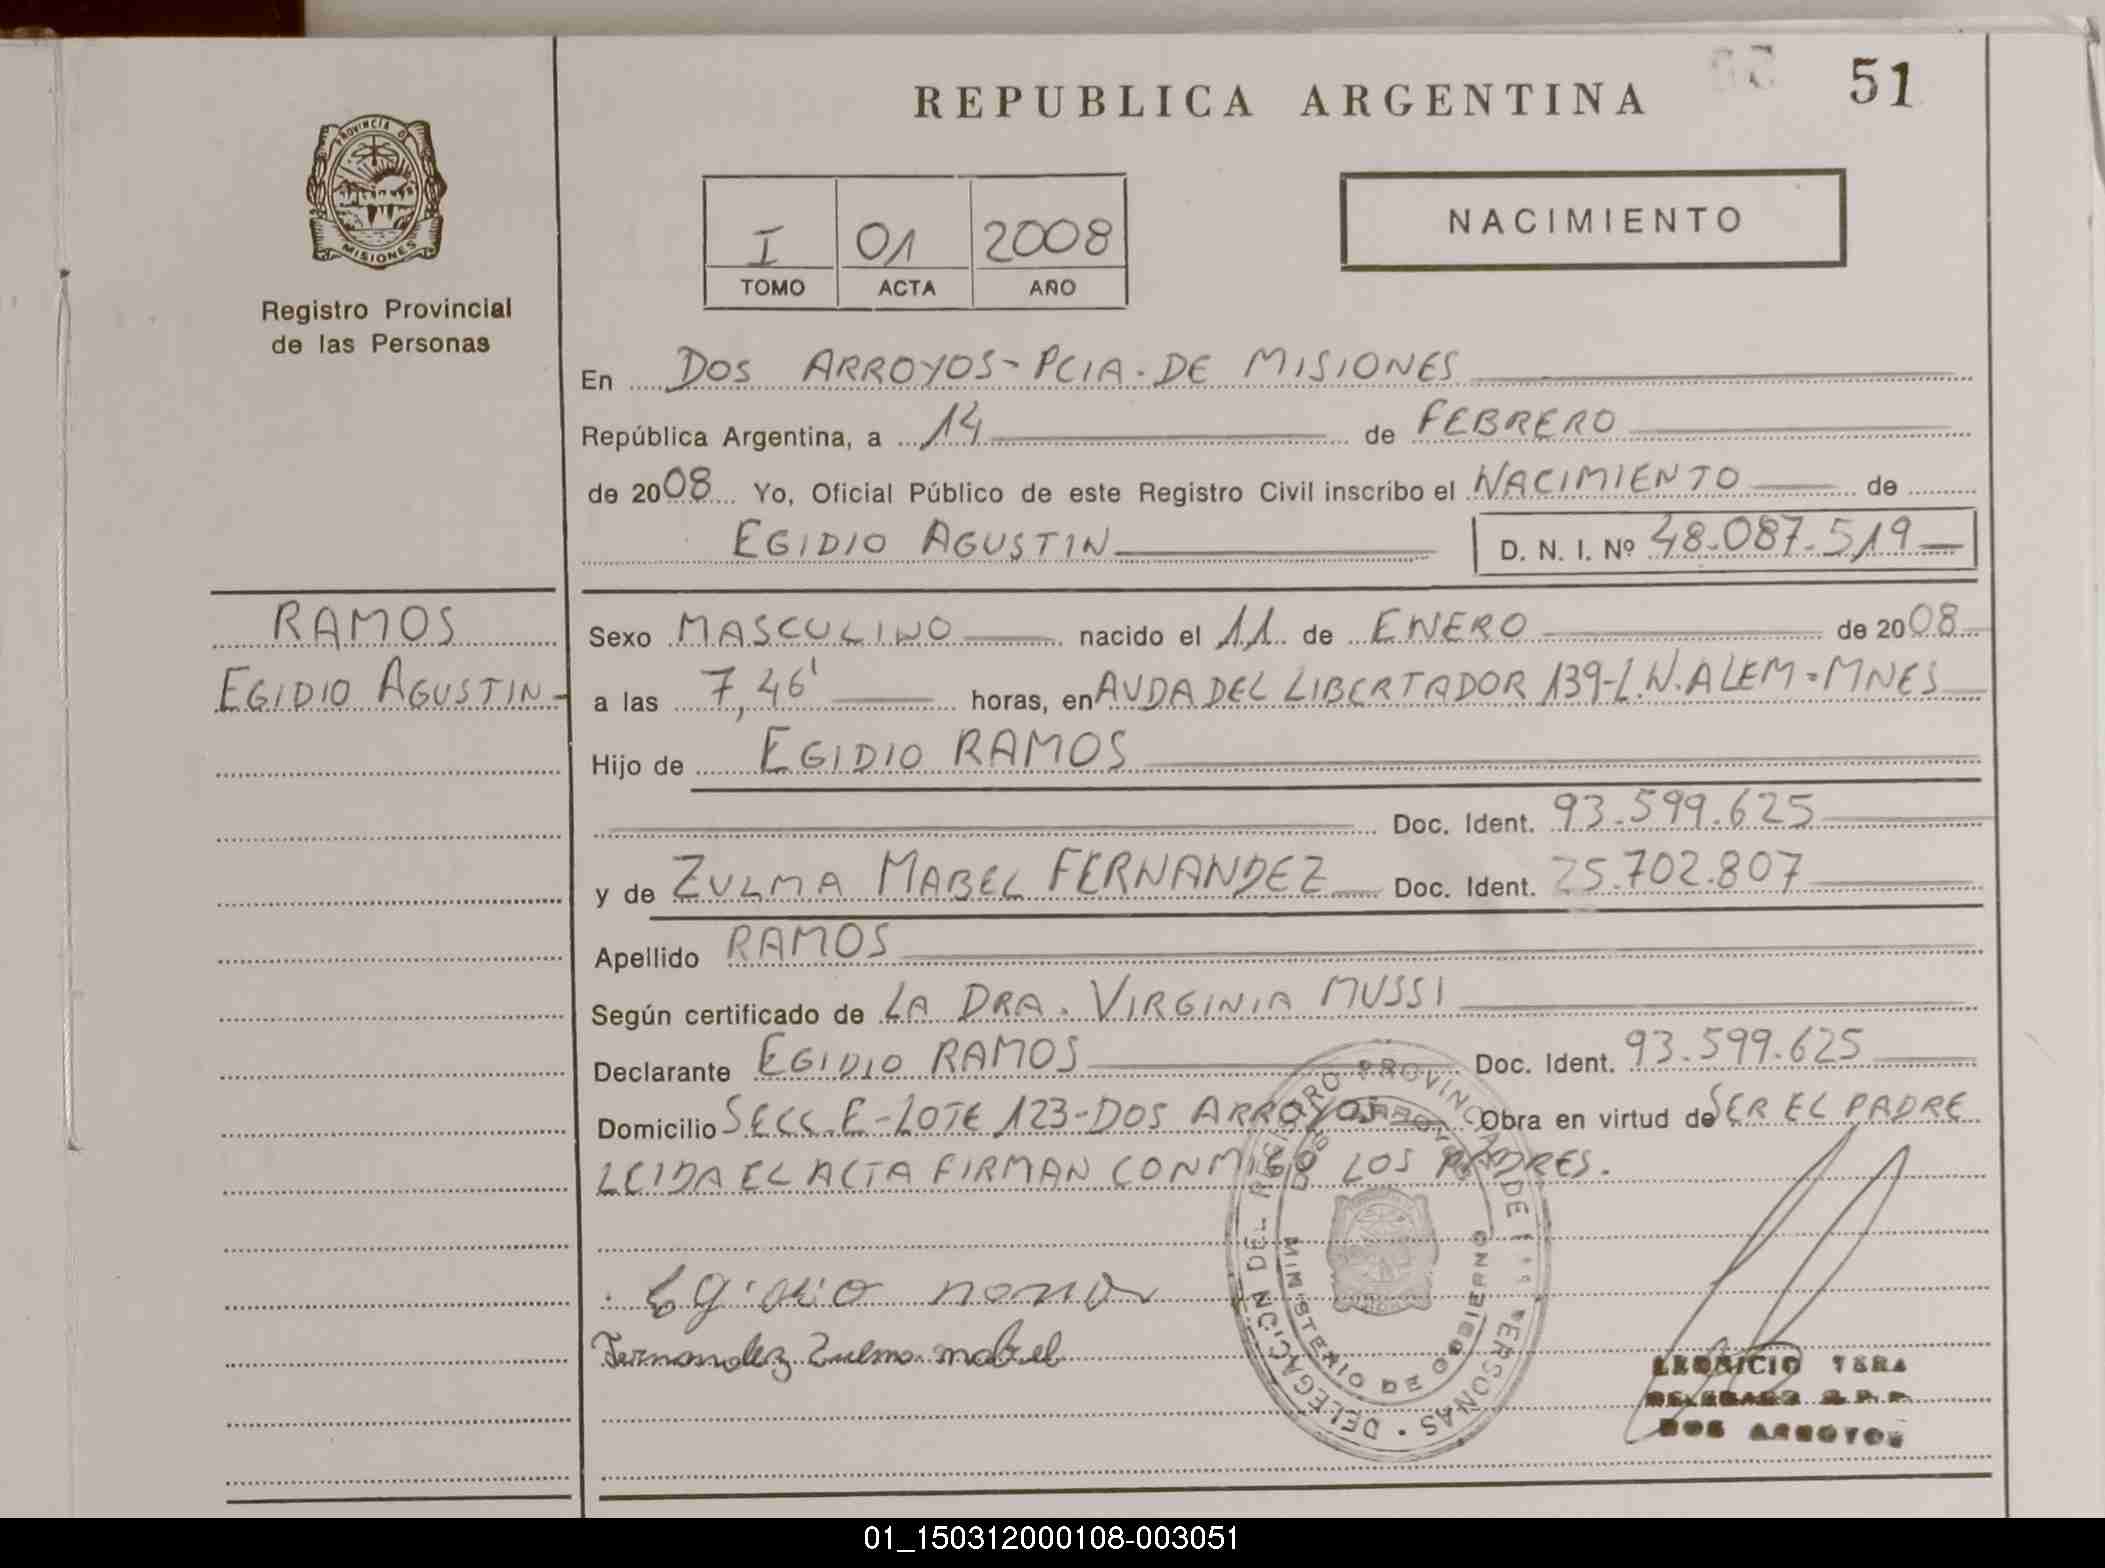 51
REPUBLICA ARGENTINA
PROVINCIA D
MISIONES
Registro Provincial
de las Personas
I 01 2008
TOMO ACTA AÑO
NACIMIENTO
En DOS ARROYOS - PCIA. DE MISIONES
República Argentina, a 14 de FEBRERO
de 2008 Yo, Oficial Público de este Registro Civil inscribo el NACIMIENTO de
EGIDIO AGUSTIN D. N. I. Nº 48.087.519
RAMOS
EGIDIO AGUSTIN
Sexo MASCULINO nacido el 11 de ENERO de 2008
a las 7,46' horas, en AVDA DEL LIBERTADOR 139-L.N.ALEM-MNES
Hijo de EGIDIO RAMOS
Doc. Ident. 93.599.625
y de ZULMA MABEL FERNANDEZ Doc. Ident. 25.702.807
Apellido RAMOS
Según certificado de LA DRA. VIRGINIA MUSSI
Declarante EGIDIO RAMOS Doc. Ident. 93.599.625
Domicilio SECC. E-LOTE 123-DOS ARROYOS Obra en virtud de SER EL PADRE
LEIDA EL ACTA FIRMAN CONMIGO LOS PADRES.
DELEGACION DEL REGISTRO PROVINCIAL DE PERSONAS
DOS ARROYOS
MINISTERIO DE GOBIERNO
Fernandez Zulma mabel
DOS ARROYOS
01_150312000108-003051